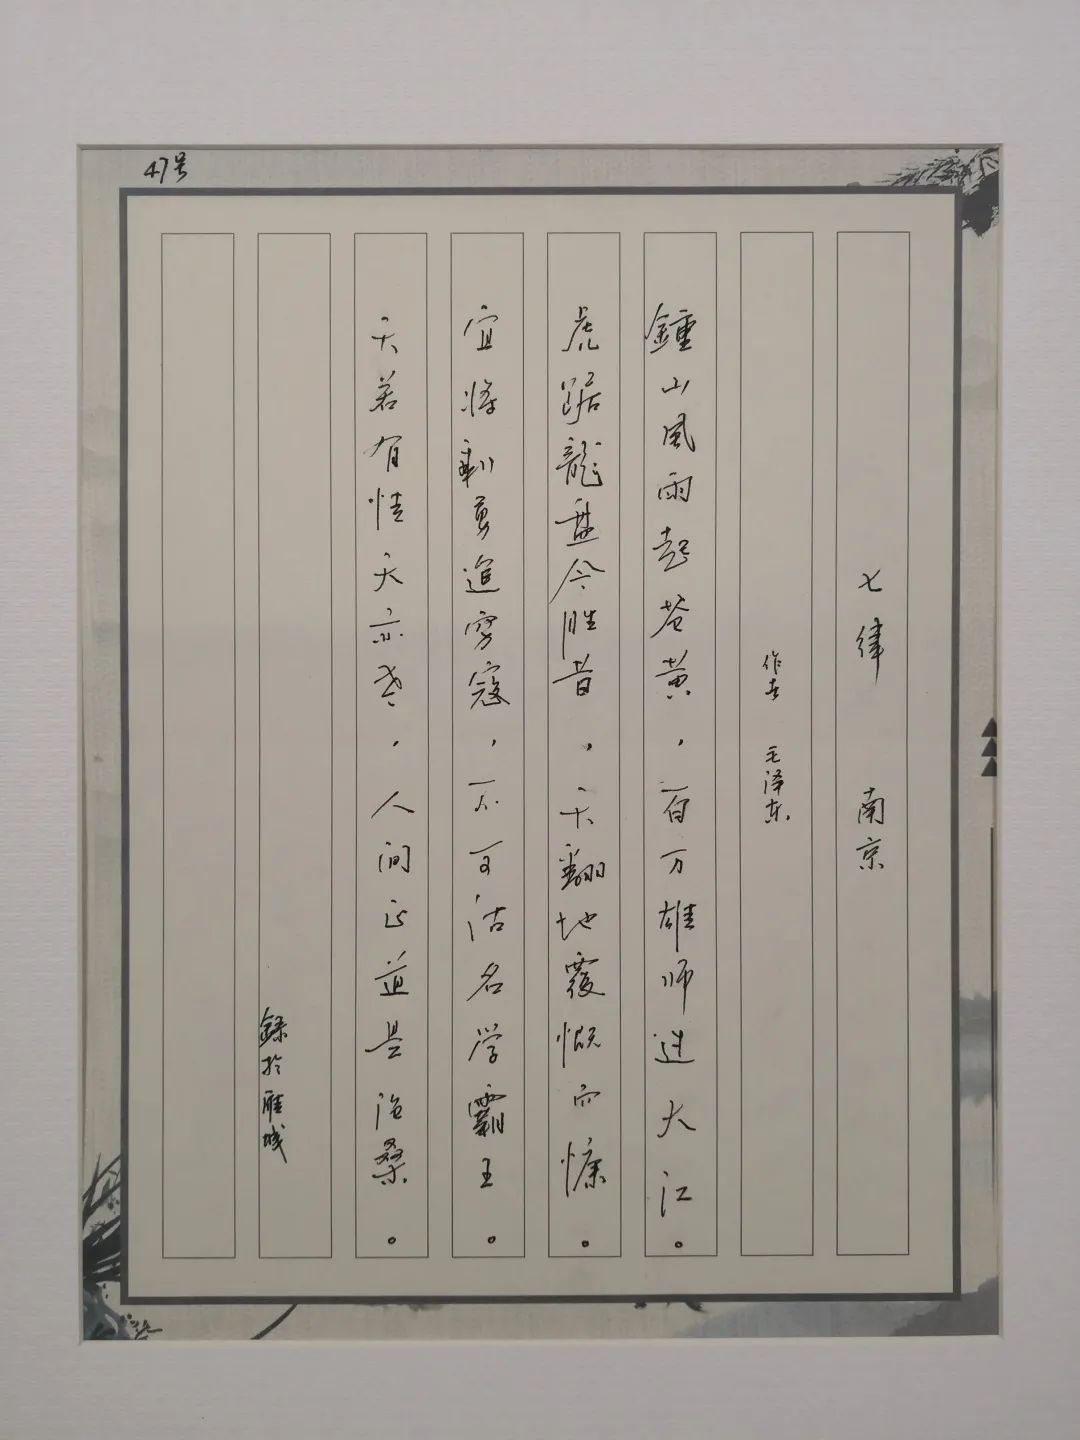 47号
七律 南京
作者 毛泽东
鍾山風雨起苍黄，百万雄师过大江。
虎踞龍盘今胜昔，天翻地覆慨而慷。
宜将剩勇追穷寇，不可沽名学霸王。
天若有情天亦老，人间正道是沧桑。
錄於雁城